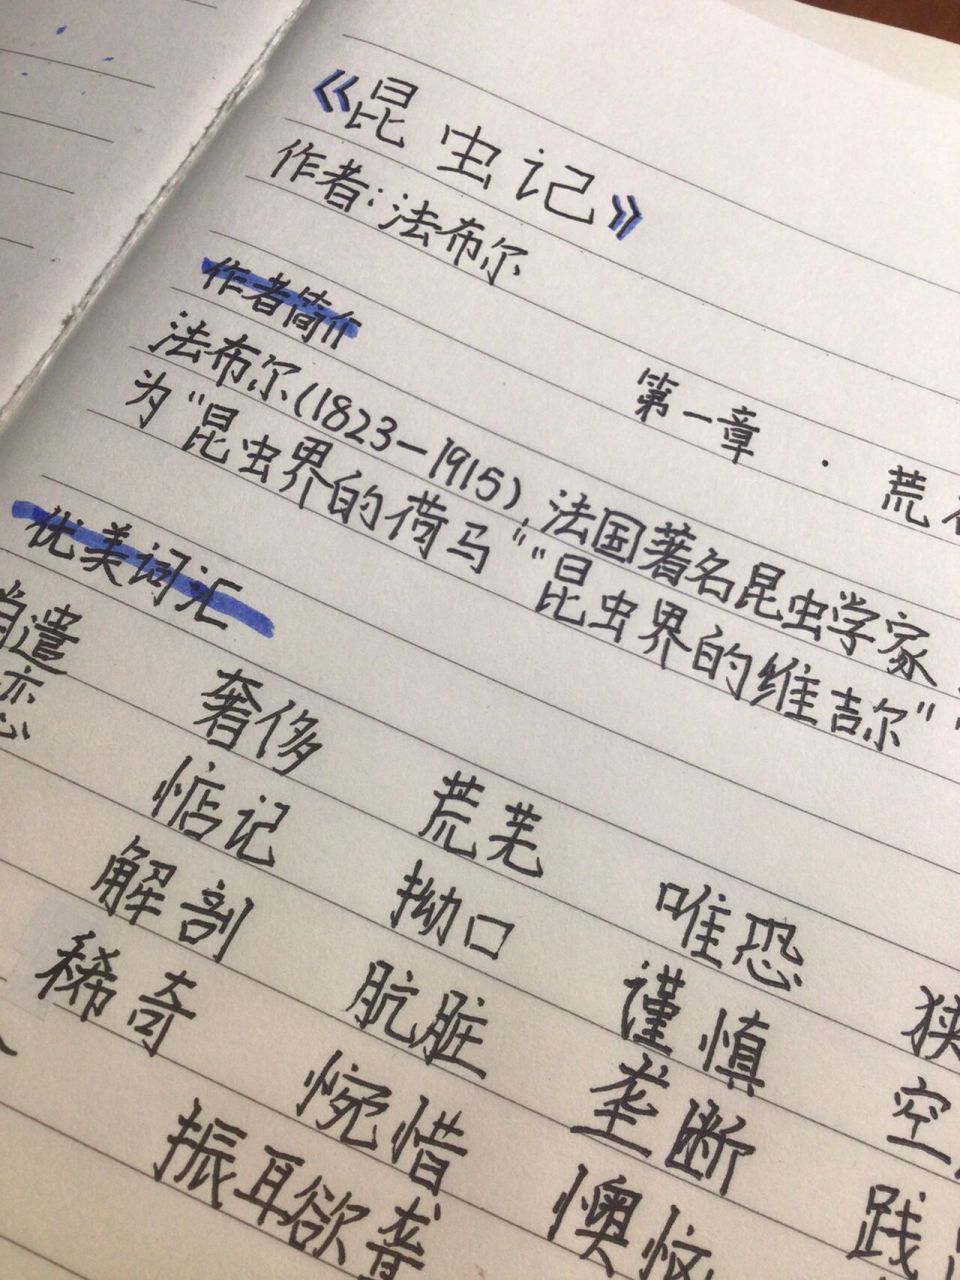 《昆虫记》
作者:法布尔
作者简介
第一章 · 荒
法布尔(1823—1915),法国著名昆虫学家
为“昆虫界的荷马”“昆虫界的维吉尔”
优美词汇
遣 奢侈 荒芜 唯恐 狭
惦记 拗口 谨慎 空
解剖 肮脏 垄断 践
稀奇 惋惜 懊
振耳欲聋